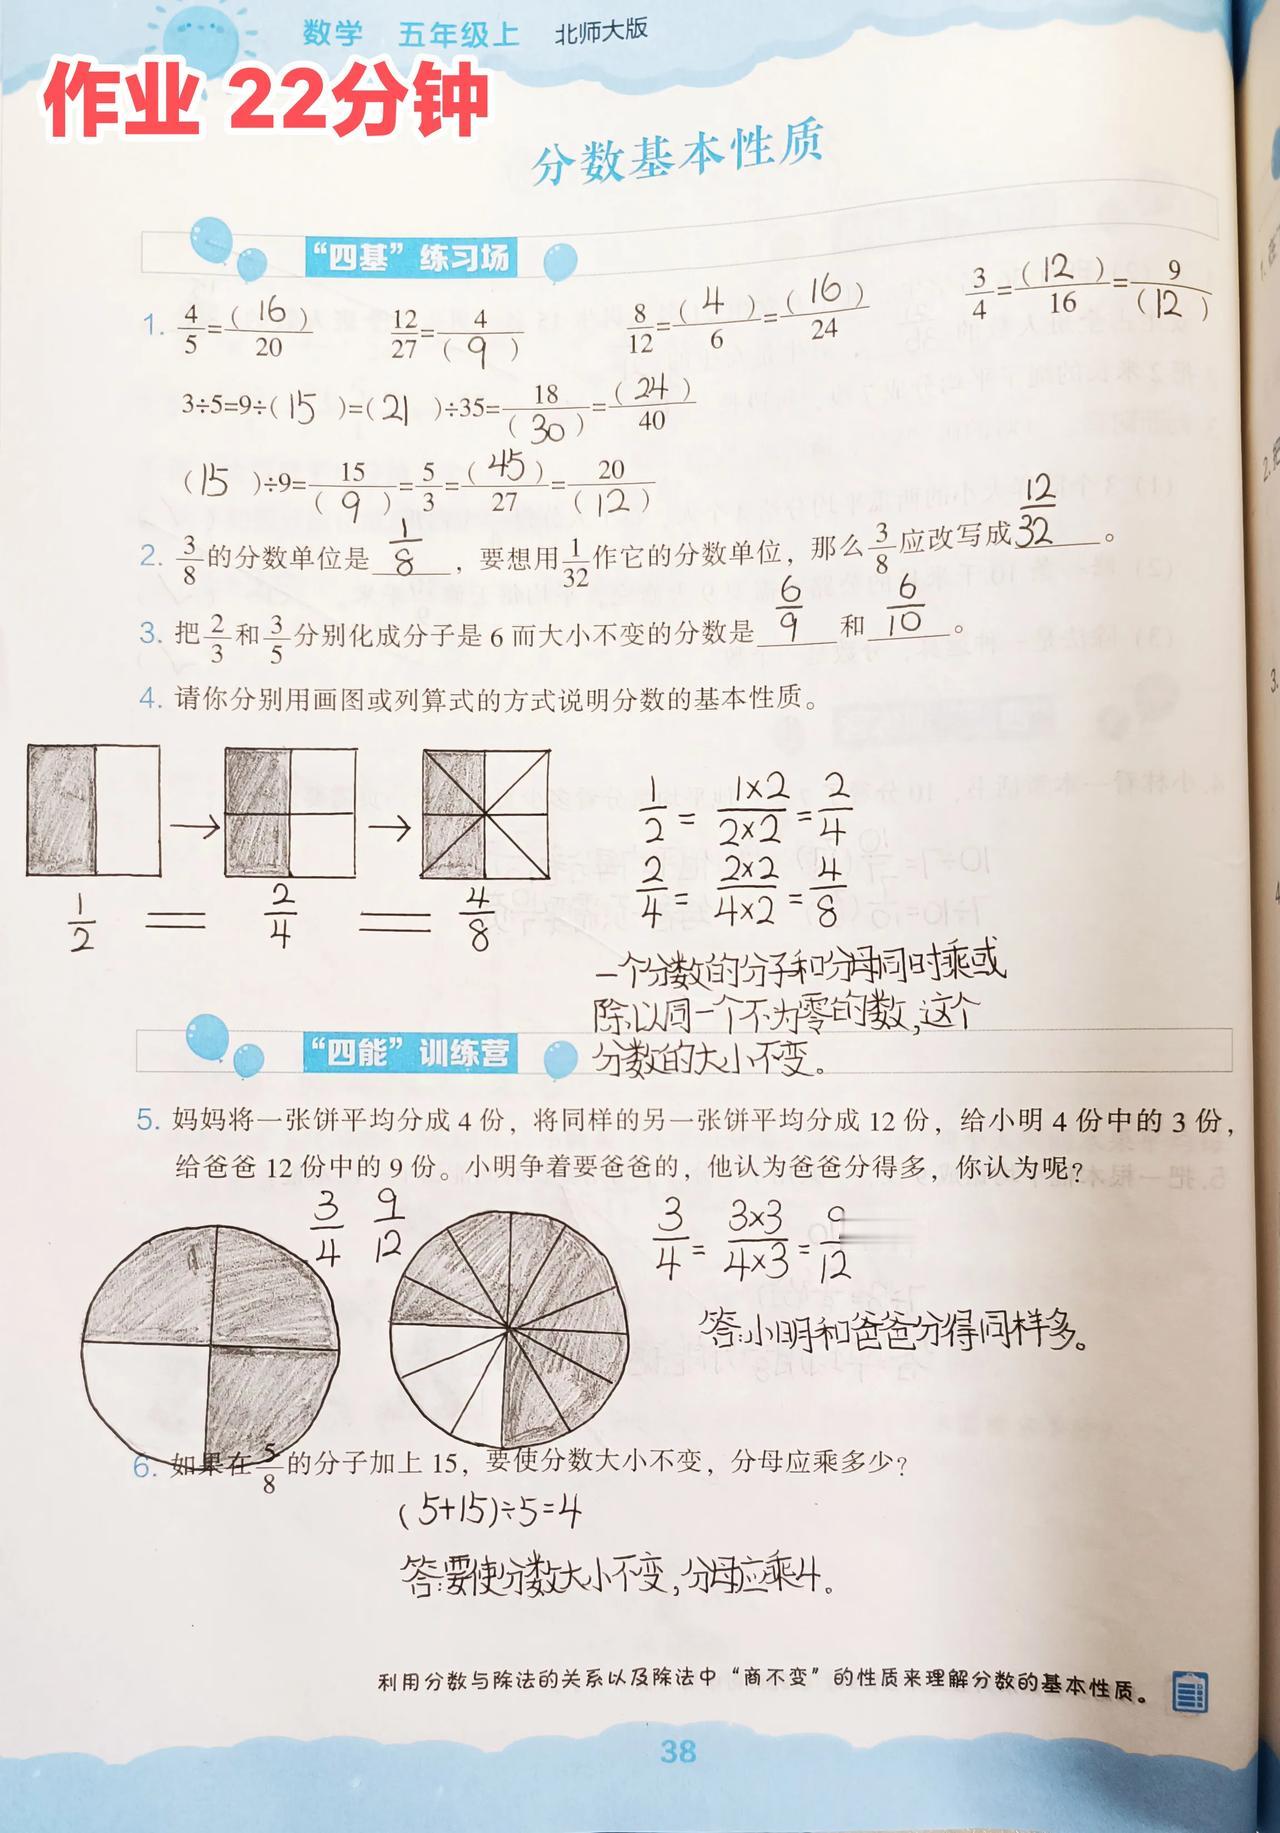 数学 五年级上 北师大版
作业 22分钟
分数基本性质
“四基”练习场
1. 4/5=(16)/20 12/27=4/(9) 8/12=(4)/6=(16)/24 3/4=(12)/16=9/(12)
3÷5=9÷(15)=(21)÷35=18/(30)=(24)/40
(15)÷9=15/(9)=5/3=(45)/27=20/(12)
2. 3/8的分数单位是 1/8 ，要想用1/32作它的分数单位，那么3/8应改写成 12/32 。
3. 把2/3和3/5分别化成分子是6而大小不变的分数是 6/9 和 6/10 。
4. 请你分别用画图或列算式的方式说明分数的基本性质。
1/2 = 2/4 = 4/8
1/2 = 1×2/2×2 = 2/4
2/4 = 2×2/4×2 = 4/8
一个分数的分子和分母同时乘或
除以同一个不为零的数,这个
分数的大小不变。
“四能”训练营
5. 妈妈将一张饼平均分成4份，将同样的另一张饼平均分成12份，给小明4份中的3份，
给爸爸12份中的9份。小明争着要爸爸的，他认为爸爸分得多，你认为呢？
3/4 9/12
3/4 = 3×3/4×3 = 9/12
答:小明和爸爸分得同样多。
6. 如果在5/8的分子加上15，要使分数大小不变，分母应乘多少？
(5+15)÷5=4
答:要使分数大小不变,分母应乘4。
利用分数与除法的关系以及除法中“商不变”的性质来理解分数的基本性质。
38